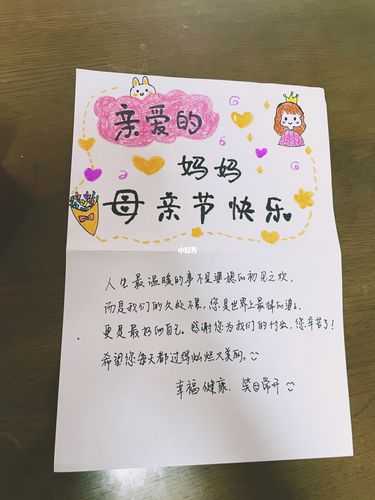 亲爱的
妈妈
母亲节快乐
小红书
人生最温暖的事不是婆媳的初见之欢,
而是我们的久处不厌,您是世界上最好的婆
更是最好的自己。感谢您为我们的付出,您辛苦了!
希望您每天都过得灿烂又美丽。
幸福健康、笑口常开